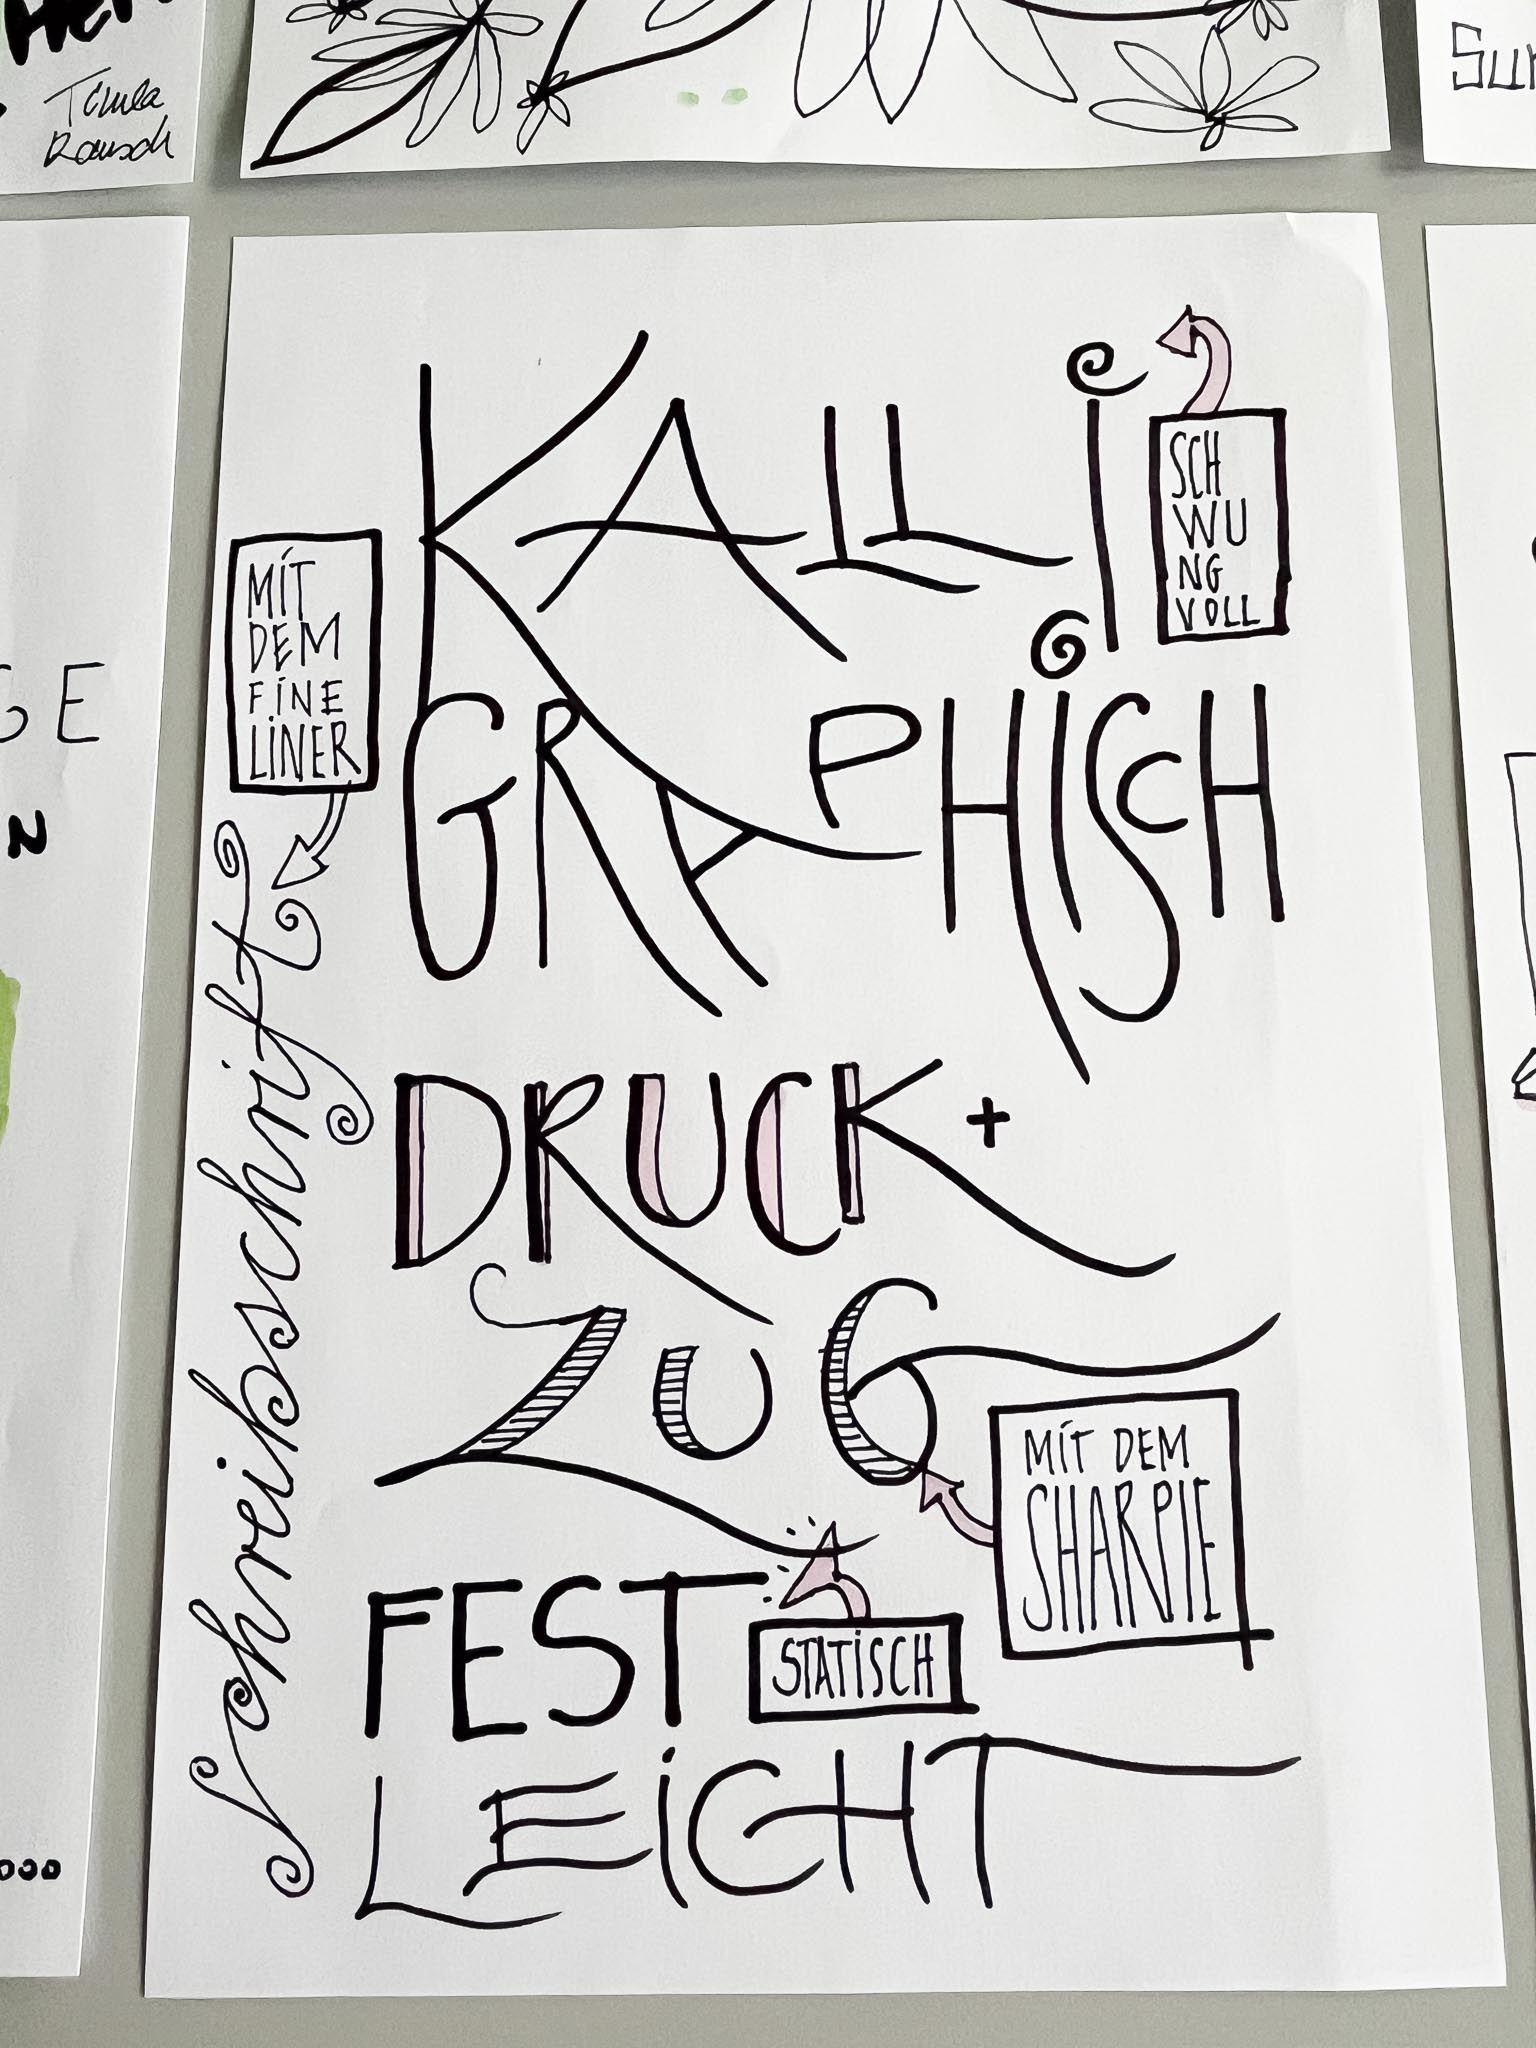 KALLi
SCH
WU
NG
VOLL
GRAPHiSCH
MiT
DEM
FiNE
LiNER
Schreibschrift
DRUCK+
ZUG
MiT DEM
SHARPIE
FEST
STATiSCH
LEiCHT
GE
N
Sun